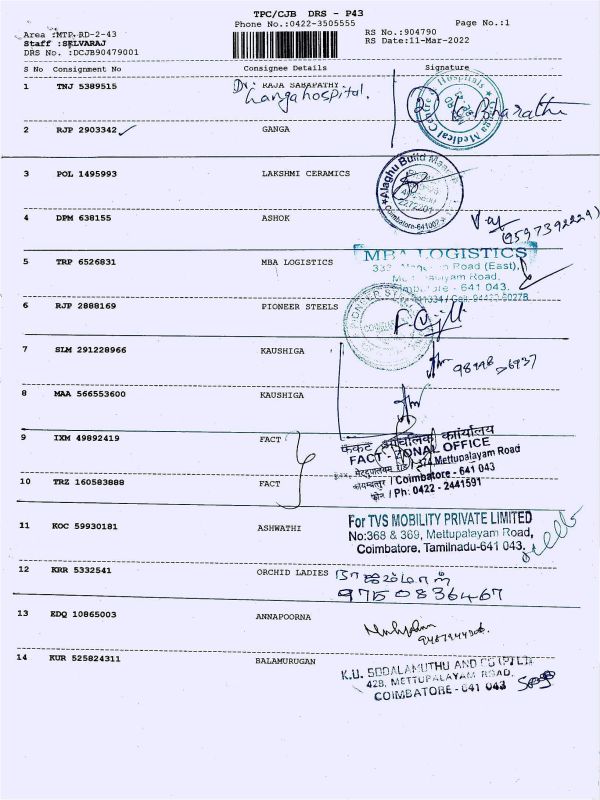 TPC/CJB DRS - P43
Phone No.:0422-3505555 Page No.:1
Area :MTP RD-2-43 RS No.:904790
Staff :SELVARAJ RS Date:11-Mar-2022
DRS No. :DCJB90479001
S No Consignment No Consignee Details Signature
1 TNJ 5389515 Dr. RAJA SABAPATHY
Ganga hospital.
Bharathi
2 RJP 2903342 GANGA
3 POL 1495993 LAKSHMI CERAMICS
Alaghu Build
Coimbatore-641002
4 DPM 638155 ASHOK
(9597392229)
5 TRP 6526831 MBA LOGISTICS MBA LOGISTICS
Road (East),
Road,
641 043.
6 RJP 2888169 PIONEER STEELS
7 SLM 291228966 KAUSHIGA
8 MAA 566553600 KAUSHIGA
9 IXM 49892419 FACT
FACT - ZONAL OFFICE
Mettupalayam Road
10 TRZ 160583888 FACT
/ Coimbatore - 641 043
/ Ph: 0422 - 2441591
11 KOC 59930181 ASHWATHI For TVS MOBILITY PRIVATE LIMITED
No:368 & 369, Mettupalayam Road,
Coimbatore, Tamilnadu-641 043.
12 KRR 5332541 ORCHID LADIES
9750836467
13 EDQ 10865003 ANNAPOORNA
14 KUR 525824311 BALAMURUGAN K.U. SODALAMUTHU AND CO (P) LTD
428, METTUPALAYAM ROAD,
COIMBATORE - 641 043